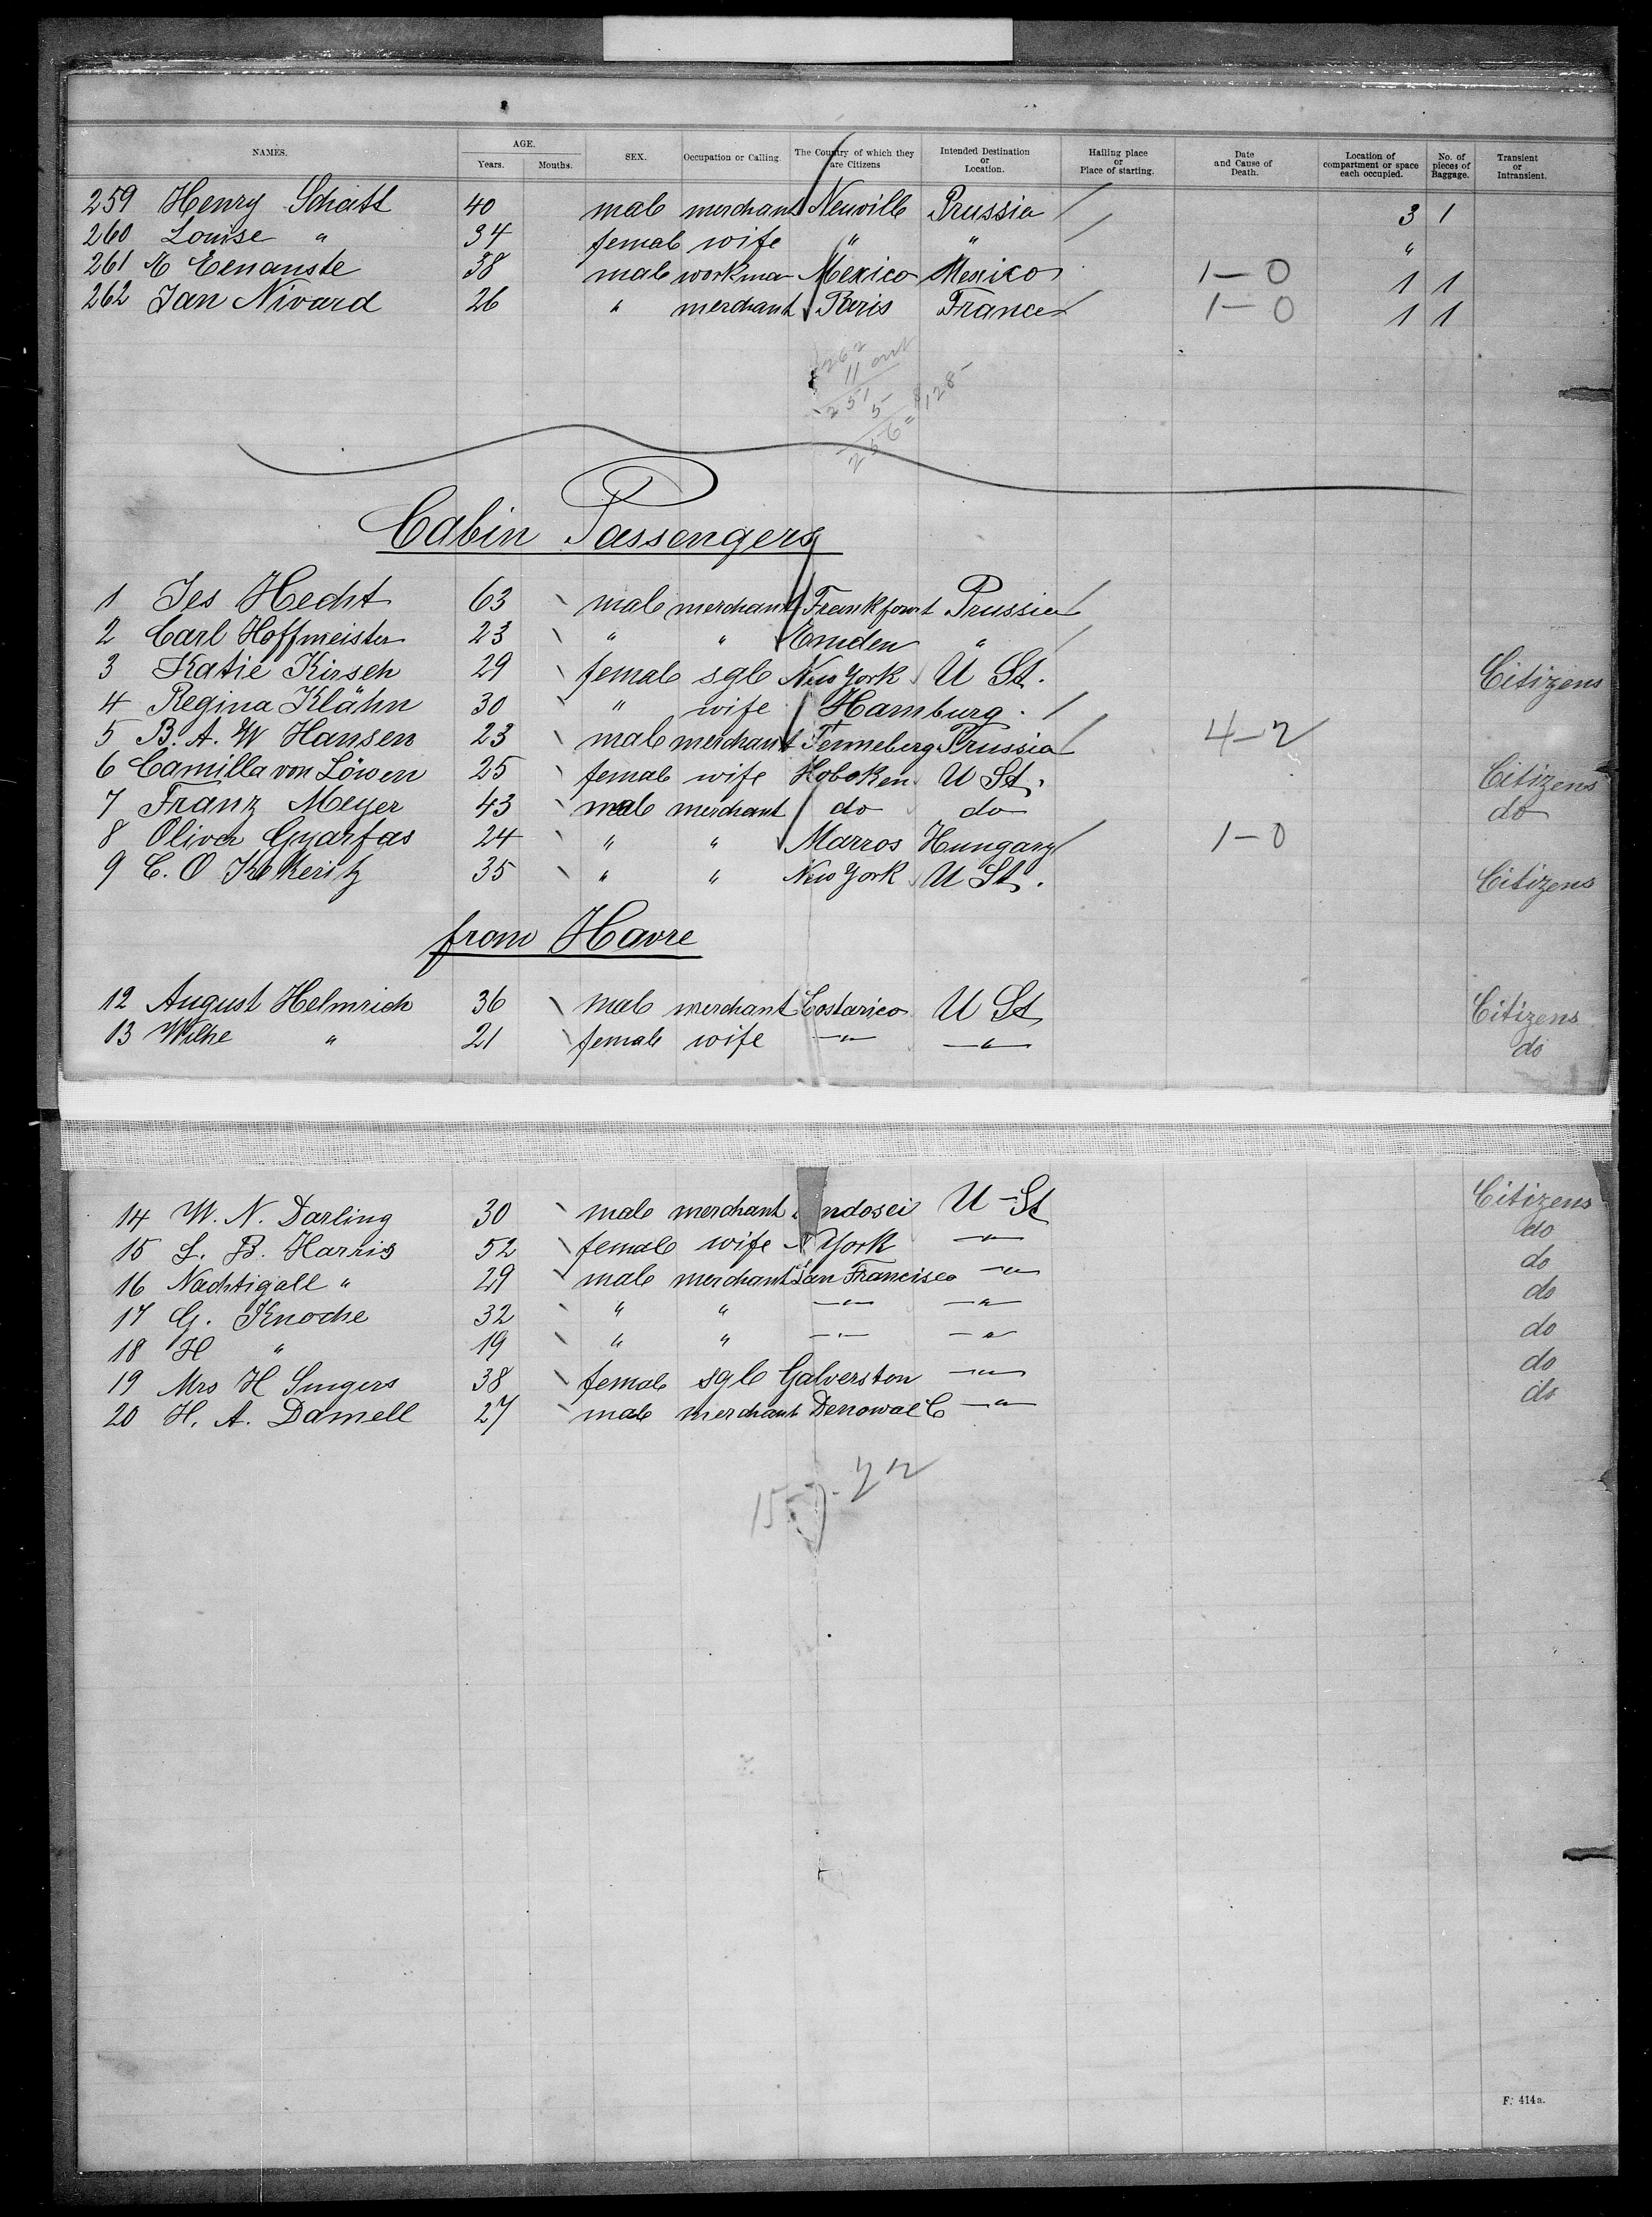 NAMES. AGE. Years. Months. SEX. Occupation or Calling. The Country of which they are Citizens Intended Destination or Location. Hailing place or Place of starting. Date and Cause of Death. Location of compartment or space each occupied. No. of pieces of Baggage. Transient or Intransient.
259 Henry Schatt 40 male merchant Neuville Prussia 3 1
260 Louise " 34 female wife " " "
261 38 male workman Mexico Mexico 1-0 1 1
262 Jan Nivard 26 " merchant Paris France 1-0 1 1
262
11 out
251
5
256 = 128-
Cabin Passengers
1 Jes Hecht 63 male merchant Frankfourt Prussia
2 Carl Hoffmeister 23 " " Emden "
3 Katie Kirsch 29 female sgle New York U St. Citizens
4 Regina Klähn 30 " wife Hamburg.
5 B. A. W Hansen 23 male merchant Tenneberg Prussia 4-2
6 Camilla von Löwen 25 female wife Hoboken U St. Citizens
7 Franz Meyer 43 male merchant do do do
8 Oliver Gyarfas 24 " " Marros Hungary 1-0
9 C. O 35 " " New York U St. Citizens
from Havre
12 August Helmrich 36 male merchant Costarica U St Citizens
13 Wilhe " 21 female wife -"- -"- do
14 W. N. Darling 30 male merchant U-St Citizens
15 L. B. Harris 52 female wife N York -"- do
16 Nachtigall " 29 male merchant San Francisco -"- do
17 G. Knoche 32 " " -"- -"- do
18 H " 19 " " -"- -"- do
19 Mrs H Singers 38 female sgle Galverston -"- do
20 H. A. Damell 27 male merchant -"- do
F. 414a.